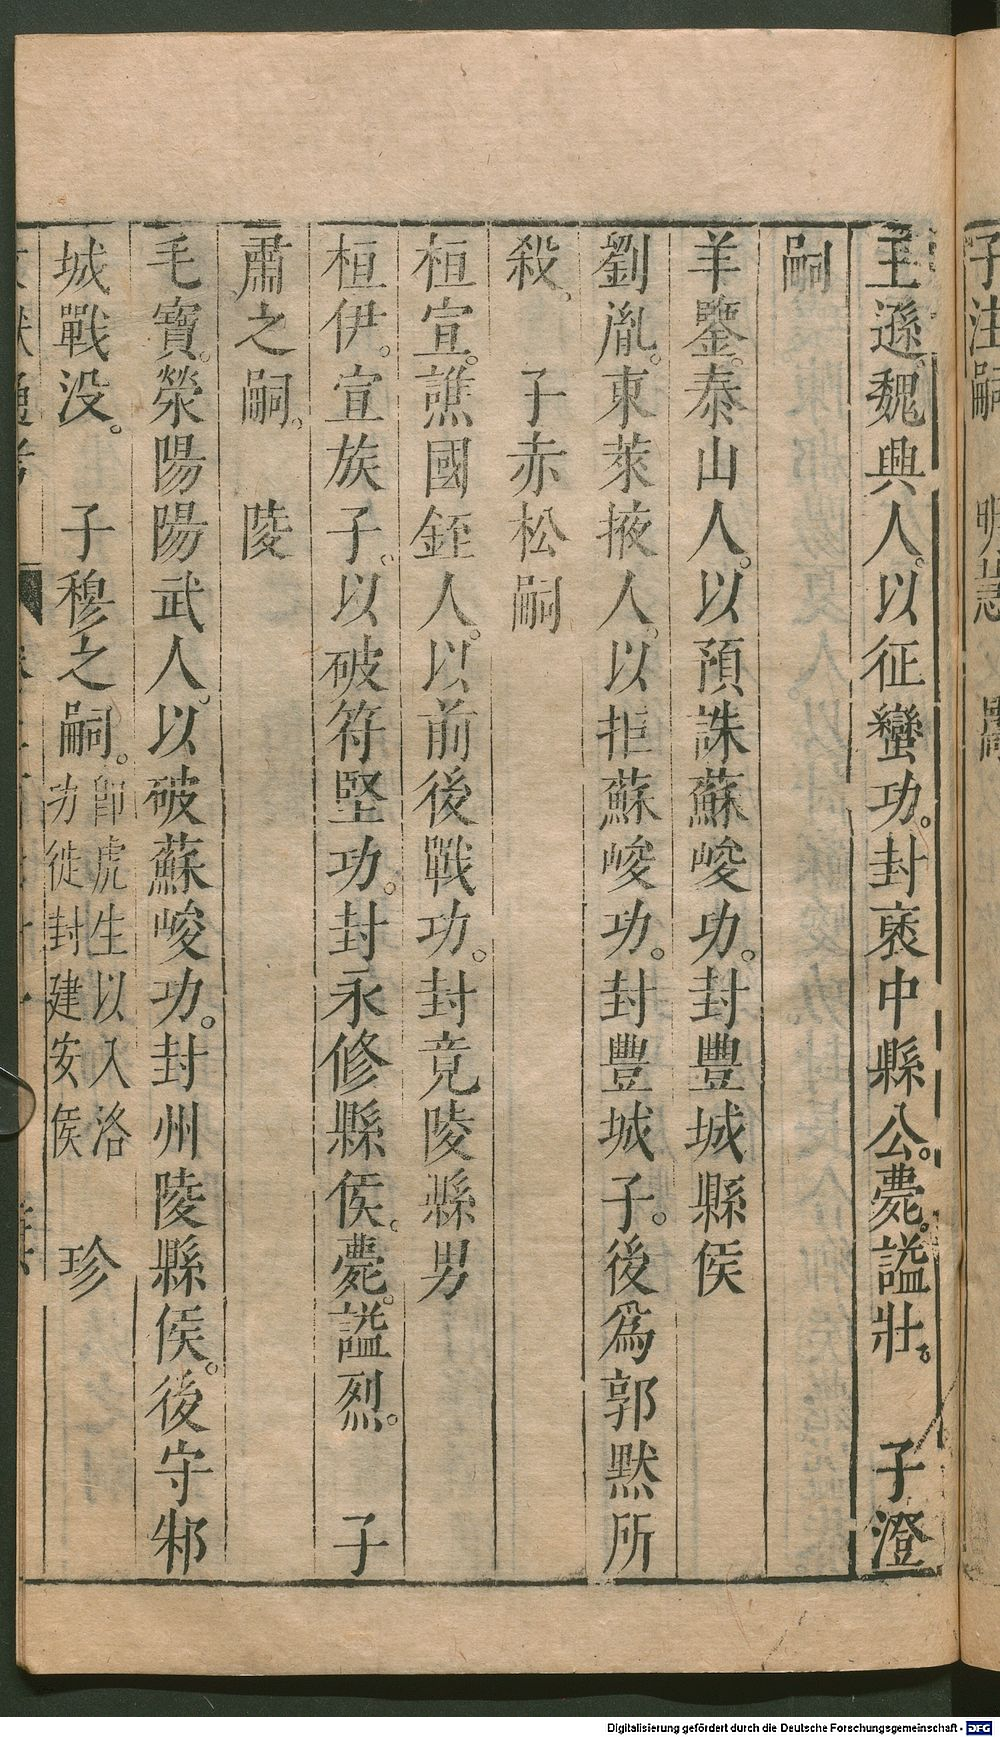 王遜。魏興人。以征蠻功。封褒中縣公。薨。謚壯。　子澄
嗣
羊鑒。泰山人。以預誅蘇峻功。封豐城縣侯
劉胤。東萊掖人。以拒蘇峻功。封豐城子。後爲郭默所
殺。　子赤松嗣
桓宣。譙國銍人。以前後戰功。封竟陵縣男
桓伊。宣族子。以破符堅功。封永修縣侯。薨。謚烈。　子
肅之嗣。　陵
毛寶。滎陽陽武人。以破蘇峻功。封州陵縣侯。後守邾
城戰没。　子穆之嗣。即虎生以入洛
功徙封建安侯　珍
Digitalisierung gefördert durch die Deutsche Forschungsgemeinschaft - DFG